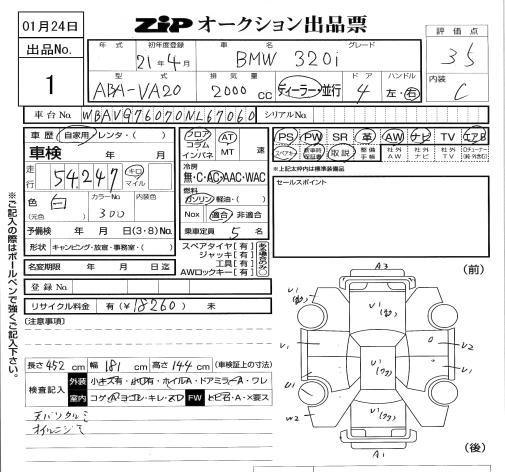 01月24日
ZIP オークション出品票
出品No.
1
年式 初年度登録 車名 グレード
21年4月 BMW 320i
型式 排気量 ドア ハンドル
ABA-VA20 2000 cc ディーラー・並行 4 左・右
評価点
35
内装
C
車台No. WBAVG76070NL67060 シリアルNo.
車歴 自家用 レンタ・( )
車検 年 月
走行 54,247 キロ マイル
色 (元色) 白 カラーNo. 300 内装色
予備検 年 月 日(3・8)No.
形状 キャンピング・放室・事務室・( )
名変期限 年 月 日迄
登録No.
リサイクル料金 有(¥18260) 未
フロア コラム インパネ AT MT 速
冷房
無・C・AC・AAC・WAC
燃料
ガソリン 軽油・( )
Nox 適合 非適合
乗車定員 5 名
スペアタイヤ【有】
ジャッキ【有】
工具【有】
AWロックキー【有】
PS PW SR 革 AW ナビ TV エアB
スペアキー 新車時保証書 取説 整備手帳 社外AW 社外ナビ 社外TV
※上記太枠内は標準装備品
セールスポイント
(注意事項)
長さ 452 cm 幅 181 cm 高さ 144 cm (車検証上の寸法)
検査記入 外装 小キズ有・小凹有・ホイルA・ドアミラーA・ワレ
室内 コゲ・穴・ヨゴレ・キレ・スレ FW トビ石・A・×要ス
天バリタルミ
オイルニジミ
※ご記入の際はボールペンで強くご記入下さい。
(前)
A3
U1
U1
U1
U2
U1
U1
U1
W2
U1
A1
(後)